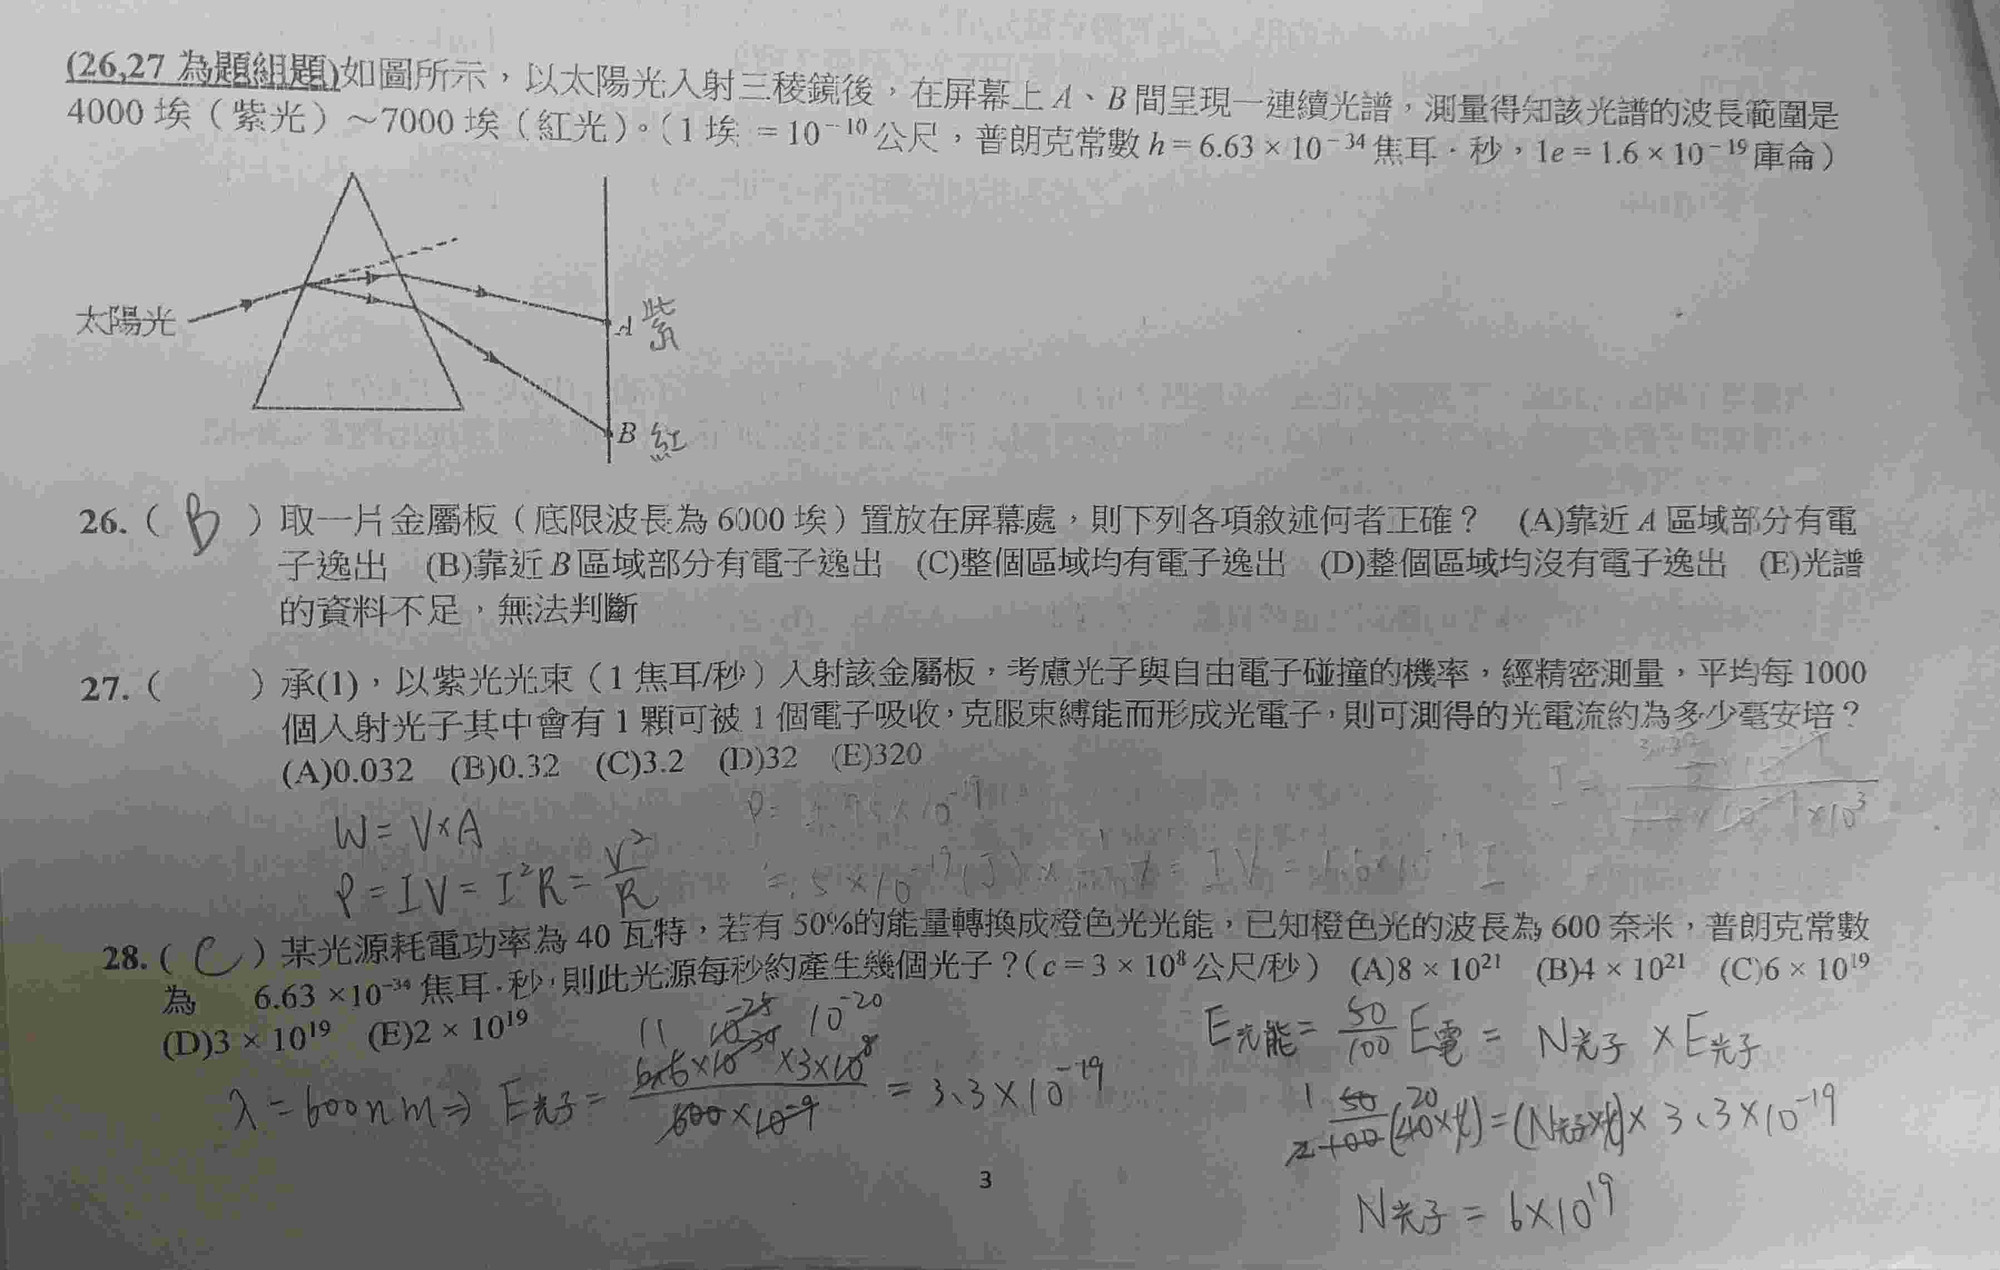 (26,27 為題組題)如圖所示，以太陽光入射三稜鏡後，在屏幕上 A、B 間呈現一連續光譜，測量得知該光譜的波長範圍是
4000 埃（紫光）～7000 埃（紅光）。（1 埃 = 10⁻¹⁰ 公尺，普朗克常數 h = 6.63 × 10⁻³⁴ 焦耳．秒，1e = 1.6 × 10⁻¹⁹ 庫侖）
太陽光
A 紫
B 紅
26.（ B ）取一片金屬板（底限波長為 6000 埃）置放在屏幕處，則下列各項敘述何者正確？ (A)靠近 A 區域部分有電
子逸出 (B)靠近 B 區域部分有電子逸出 (C)整個區域均有電子逸出 (D)整個區域均沒有電子逸出 (E)光譜
的資料不足，無法判斷
27.（ ）承(1)，以紫光光束（1 焦耳/秒）入射該金屬板，考慮光子與自由電子碰撞的機率，經精密測量，平均每 1000
個入射光子其中會有 1 顆可被 1 個電子吸收，克服束縛能而形成光電子，則可測得的光電流約為多少毫安培？
(A)0.032 (B)0.32 (C)3.2 (D)32 (E)320
W = V×A
P = IV = I²R = V²/R
28.（ C ）某光源耗電功率為 40 瓦特，若有 50%的能量轉換成橙色光光能，已知橙色光的波長為 600 奈米，普朗克常數
為 6.63 ×10⁻³⁴ 焦耳．秒，則此光源每秒約產生幾個光子？（c = 3 × 10⁸ 公尺/秒） (A)8 × 10²¹ (B)4 × 10²¹ (C)6 × 10¹⁹
(D)3 × 10¹⁹ (E)2 × 10¹⁹
λ = 600nm ⇒ E光子 = 6.6×10⁻³⁴ ×3×10⁸ / 600×10⁻⁹ = 3.3×10⁻¹⁹
11 10⁻²⁵ 10⁻²⁰
E光能 = 50/100 E電 = N光子 × E光子
50/100 (40×t) = (N光子×t) × 3.3×10⁻¹⁹
N光子 = 6×10¹⁹
3